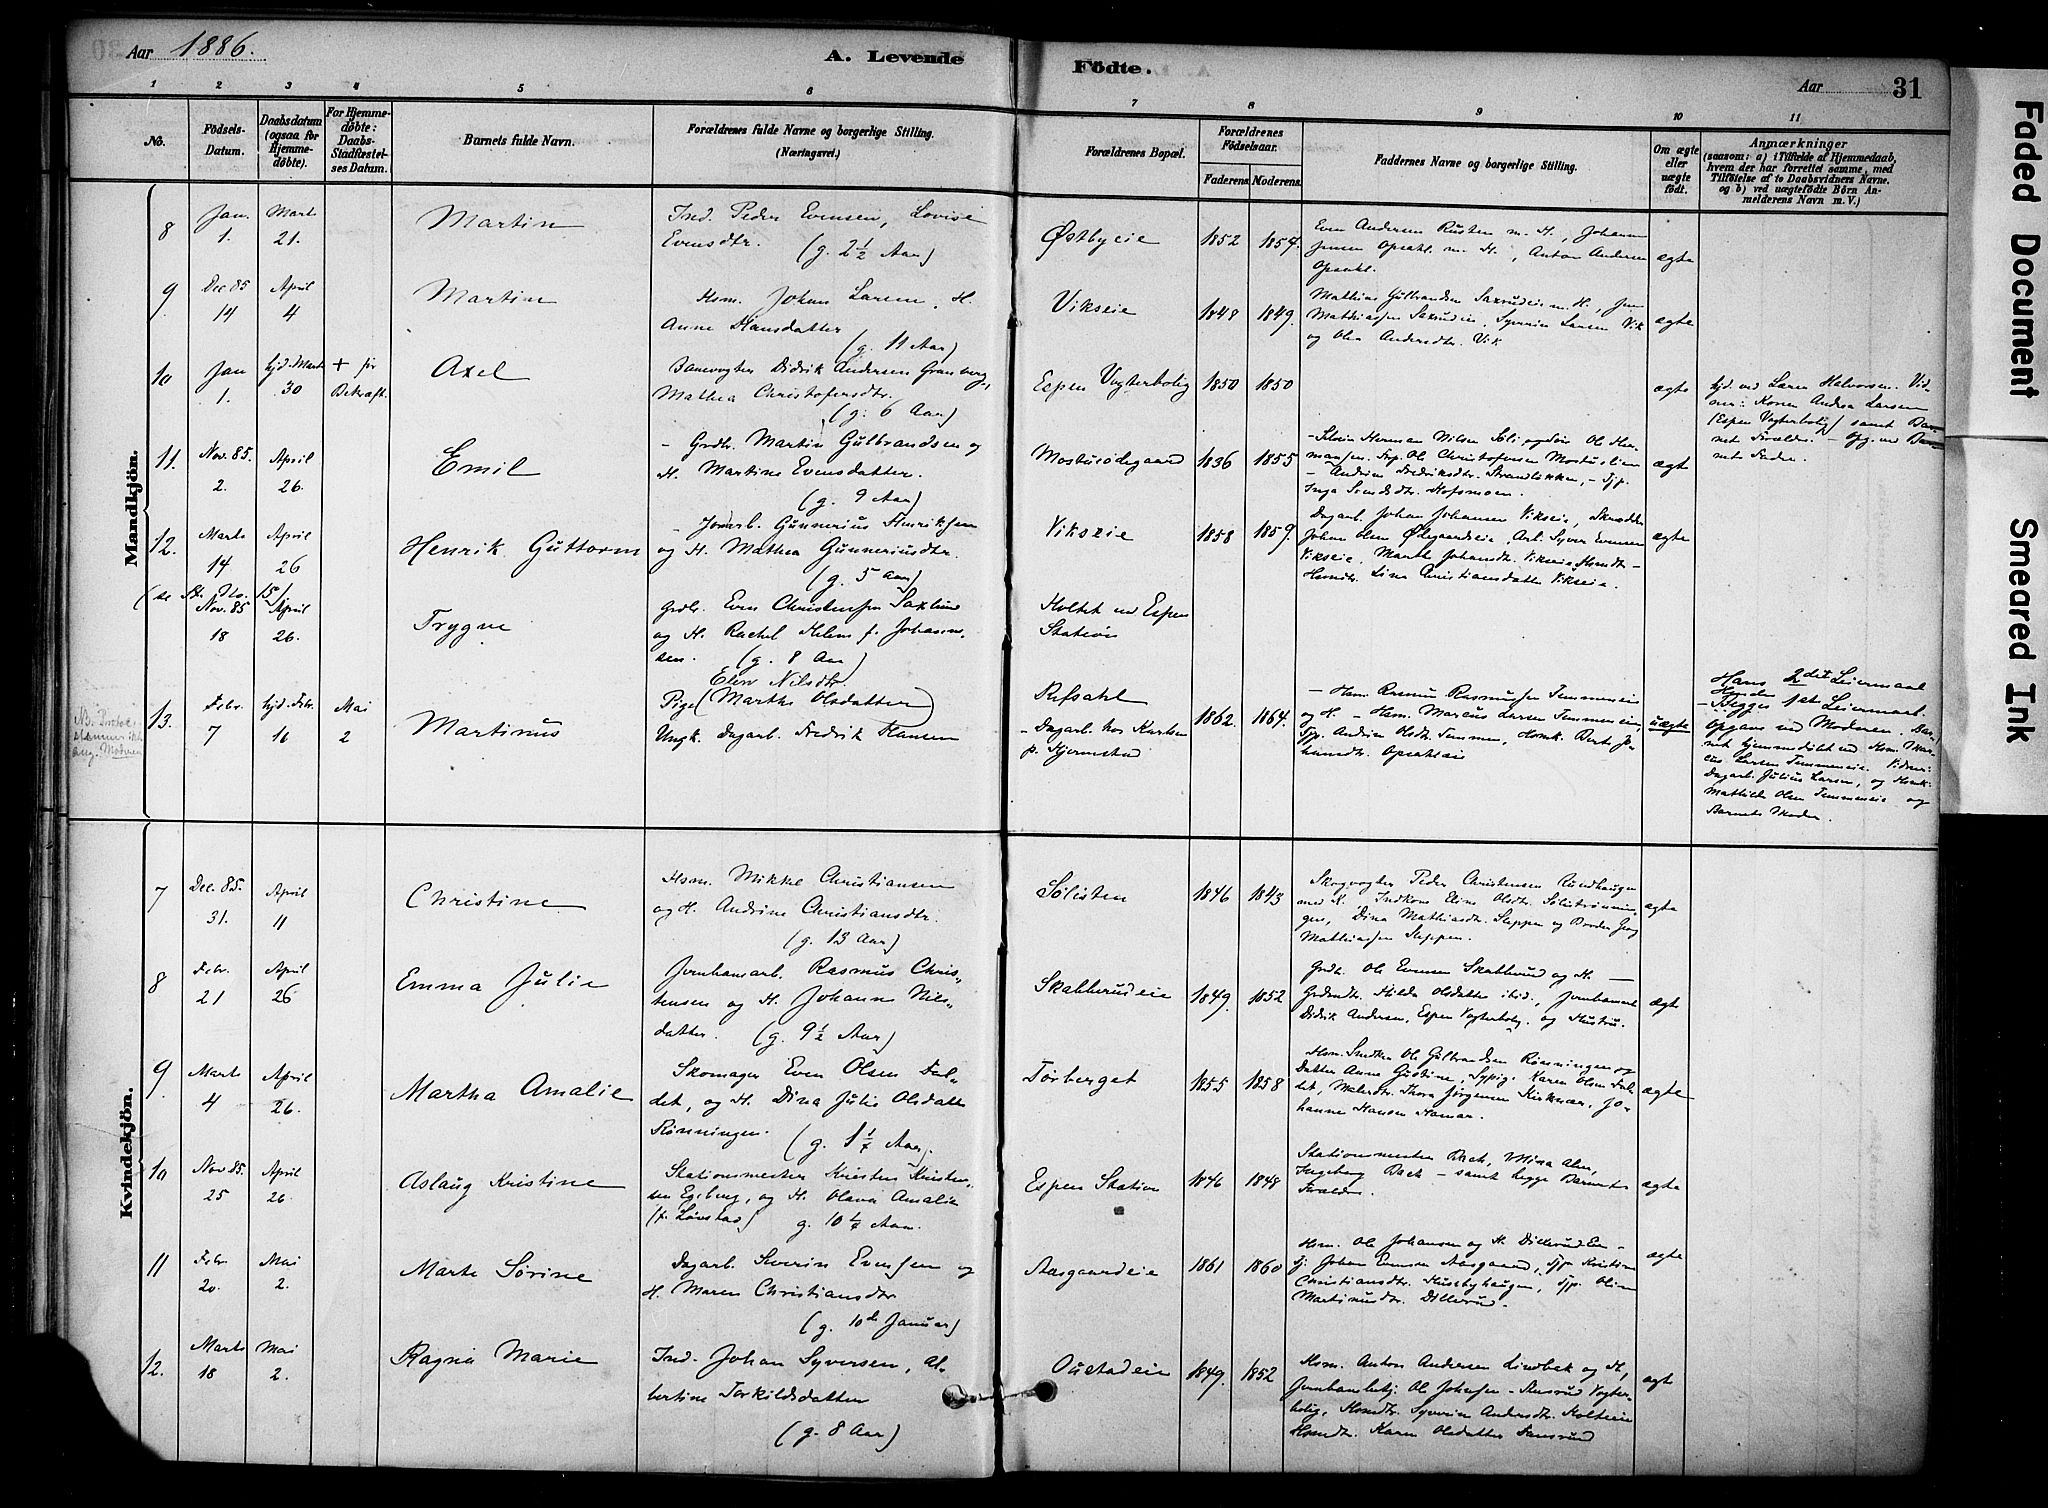 Aar 1886.
A. Levende Fødte.
Aar 31
1 2 3 4 5 6 7 8 9 10 11
No.
Fødsels-Datum.
Daabsdatum (ogsaa for Hjemme-døbte).
For Hjemme-døbte: Daabs-Stadfæstel-ses Datum.
Barnets fulde Navn.
Forældrenes fulde Navne og borgerlige Stilling. (Næringsvei.)
Forældrenes Bopæl.
Forældrenes Fødselsaar.
Faderens. Moderens.
Faddernes Navne og borgerlige Stilling.
Om ægte eller uægte født.
Anmærkninger
(saasom: a) i Tilfælde af Hjemmedaab, hvem der har forrettet samme, med Tilføielse af to Daabsvidners Navne. og b) ved uægtefødte Børn Anmelderens Navn m. V.)
Mandkjön.
8 Jan. 1. Mart. 21. Martin
Ind. Peder Evensen, Lovise
Evensdtr. (g. 2½ Aar)
Østbyeie 1852 1854.
Even Andersen Rusten m. H., Johannes
Jensen Opsahl m. H., Anton Andersen
Opsahl.
ægte
9. Dec 85 14 April 4 Martin
Hsm. Johan Larsen, H.
Anne Hansdatter
(g. 11 Aar)
Vikseie 1848 1849.
Mathias Gulbrandsen Saxrudeie m. H., Jens
Mathiassen Saxrudeie, Syverin Larsen Vik
og Olea Andersdtr. Vik
ægte
10 Jan 1. hjd. Marts 30 + før Bekræft. Axel
Banevogter Didrik Andersen Granberg,
Mathea Christofersdtr.
(g. 6 Aar)
Espen Vogterbolig 1850 1850
ægte
hjd. ved Lars Halvorsen. Vid-
ner: Konen Andrea Larsen
(Espen Vogterbolig) samt Bar-
nets Forældre. – Opg. ved Bar-
nets Fader.
11. Nov. 85. 2. April 26. Emil
– Grdbr. Martin Gulbrandsen og
H. Martine Evensdatter.
(g. 9 Aar)
Mostueødegaard 1836 1855
Herman Nilsen
Ole Christofersen
– Andrine Fredriksdtr. Strandløkken, – Pjp.
Inga Svendsdtr. Hofsmoen.
ægte
12. Marts 14 April 26 Henrik Guttorm
– Jernb. Gunnerius Henriksen
og H. Mathea Gunneriusdtr.
(g. 5 Aar)
Vikseie 1858 1859.
Dagarb. Johan Johansen Vikseie, Skrædder
Johan Olsen Ødegaardseie, Arb. Syver Evensen
Vikseie, Marthe Johansdt. Vikseie, Hsmdt –
Hsmdtr. Lina Christiansdatter Vikseie.
ægte
(se St. No. 15).
Nov. 85 18 April 26. Trygve
Grdbr. Even Christensen Saxlund
og H. Rachel Helene f. Johannes-
sen. (g. 8 Aar)
Holtet ved Espen
Station
13. Febr. 7 hjd. Febr. 16 Mai 2 Martinus
Elen Nilsdtr
Pige (Marthe Olsdatter)
Ungk. Dagarb. Fredrik Hansen
Refsahl
– Dagarb. hos Karsten
p. Hjermstad
1862. 1864.
– Hsm. Rasmus Rasmussen Temmeneie
og H. – Hsm. Marcus Larsen Temmeneie,
Pjp. Andrine Olsdt. Temmen, Hsmk. Berte Jo-
hansdt. Opsahleie
uægte
Hans 2det Leiermaal
Hendes 1ste Leiermaal.
Opgave ved Moderen. Bar-
net hjemmedøbt ved Hsm. Mar-
cus Larsen Temmeneie. Vidner:
Dagarb. Julius Larsen, og Hsmk.
Mathilde Olsen Temmeneie og
Barnets Moder.
Kvindekjön.
7 Dec. 85. 31. April 11 Christine
Hsm. Mikkel Christiansen
og H. Andrine Christiansdtr.
(g. 13 Aar)
Sølisten 1846 1843
Skogvogter Peder Christensen Rundhaugen
med K. Indkone Eline Olsdtr. Sølistrønnin-
gen, Dina Mathiasdt. Sleppen og Broder Jens
Mathiassen Sleppen.
ægte
8 Febr. 21 April 26 Emma Julie
Jernbanearb. Rasmus Chris-
tensen og H. Johanne Niels-
datter. (g. 9½ Aar)
Skabberudeie 1849. 1852
Grdb. Ole Evensen Skabberud og H. –
Grdmdt. Hilda Olsdatter ibid., Jernbanearb.
Didrik Andersen, Espen Vogterbolig. og Hustru.
ægte
9. Marts 4 April 26. Martha Amalie
Skomager Even Olsen Dal-
det, og H. Dina Julie Olsdatter
Rønningen. (g. 1¼ Aar).
Torberget 1855 1858
Hsm. Smeden Ole Gulbrandsen Rønningen og
Datter Anne Gustine, Sypig. Karen Olsen Dal-
det, Malerdtr. Thora Jørgensen Kirknær, Jo-
hanne Hansen Hamar.
ægte
10 Nov 85. 25 April 26. Aslaug Kristine
Stationsmester Kristen Kristen-
sen Egeberg, og H. Olava Amalie
(f. Løvstad) g. 10¼ Aar.
Espen Station 1846 1848
Stationsmester Bach, Mina Alm,
Ingeborg Bach – samt begge Barnets
Forældre.
ægte
11 Febr. 20. Mai 2. Marte Sørine
Dagarb. Severin Evensen og
H. Maren Christiansdtr
(g. 10de Januar)
Aasgaardeie 1861 1860
Hsm. Ole Johansen og H. Dillerud En –
Johan Evensen Aasgaard, Pjp Kristine
Christiansdtr. Husebyhaugen, Pjp. Oline
Martinusdtr. Dillerud.
ægte
12. Marts 18 Mai 2. Ragna Marie
Ind. Johan Syversen, Al-
bertine Torkildsdatter
(g. 8 Aar)
Oustadeie 1849. 1852
Hsm. Anton Andersen Lindbæk og H.,
Jernbanebetj. Ole Johansen – Vogter-
bolig, Hsmdtr. Syverine Andersdtr. Holteeie
Hsmdt. Karen Olsdatter
ægte
Faded Document
Smeared Ink